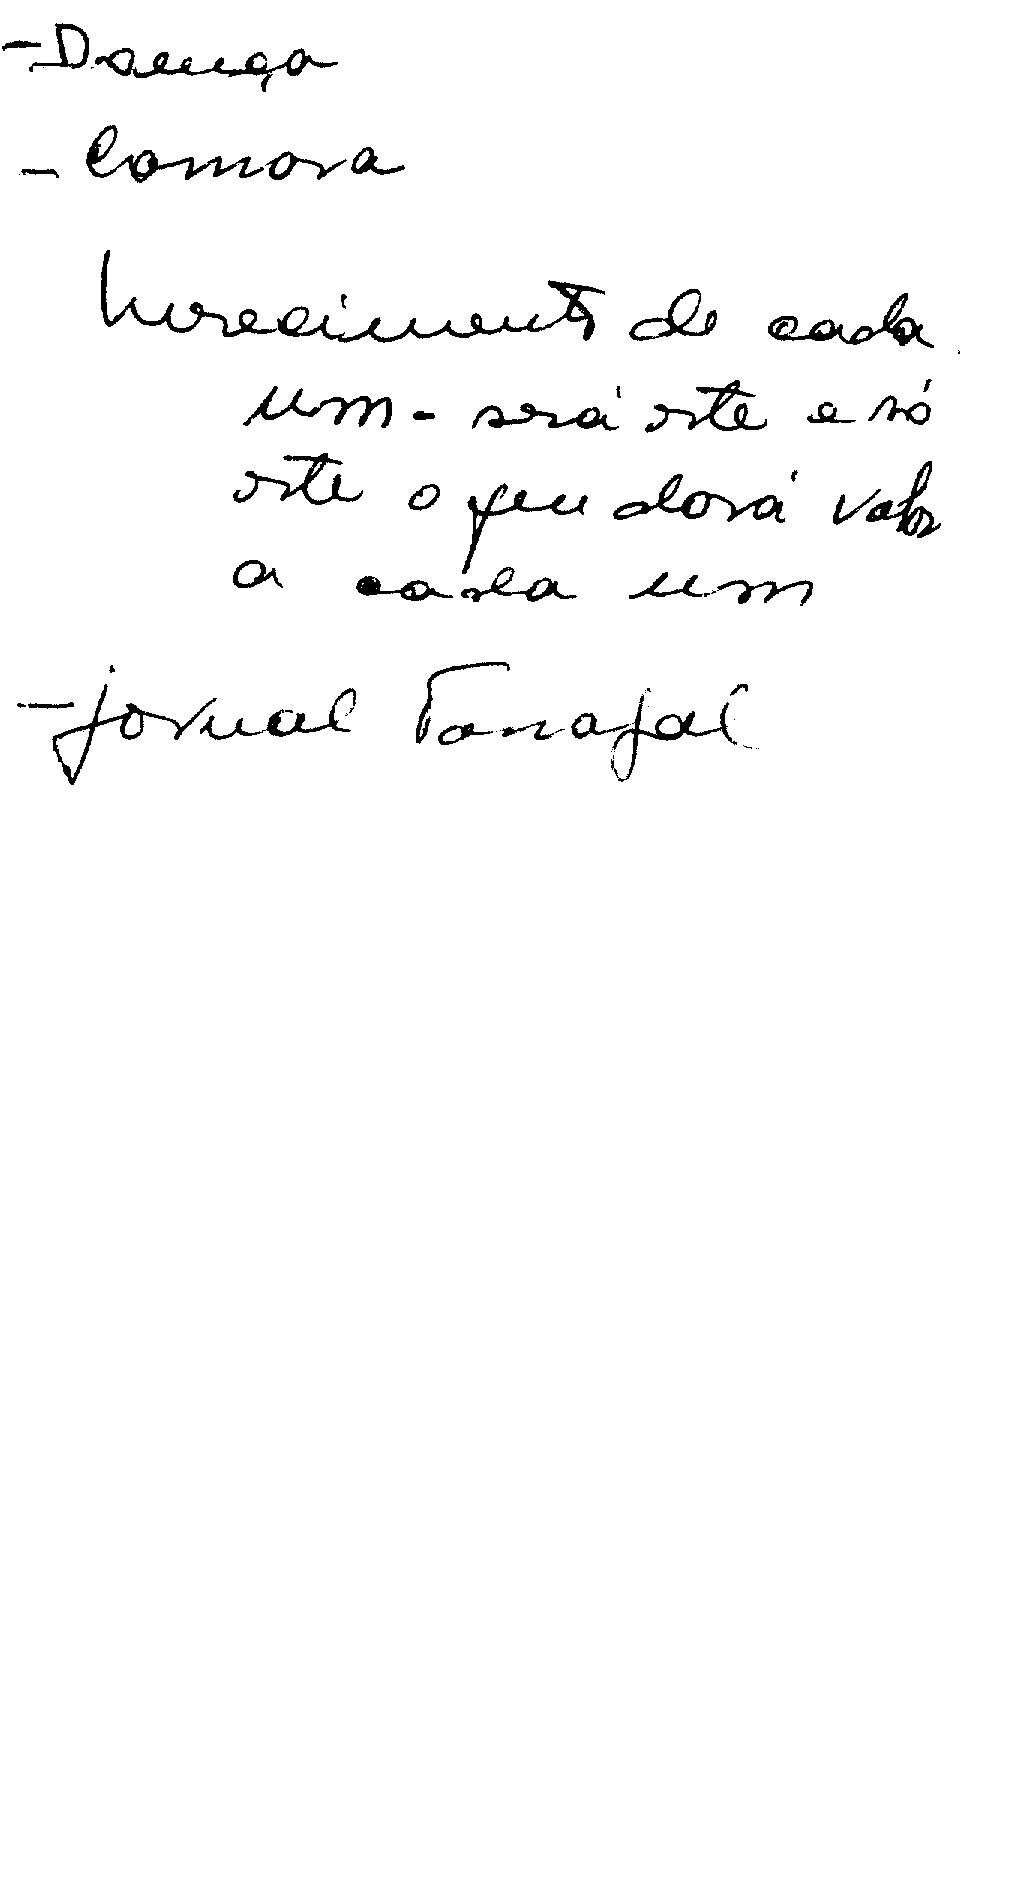 - Doença
- Camara
Merecimento de cada
um - será este e só
este o que dará valor
a cada um
- jornal Tarrafal